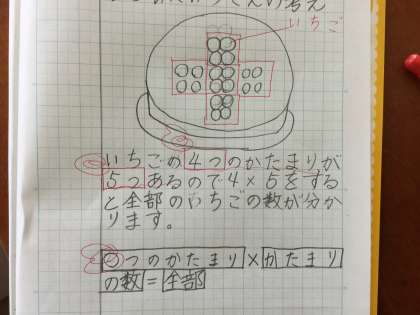 いちご
いちごの4つのかたまりが
5つあるので4×5をする
と全部のいちごの数が分か
ります。
○つのかたまり×かたまり
の数=全部